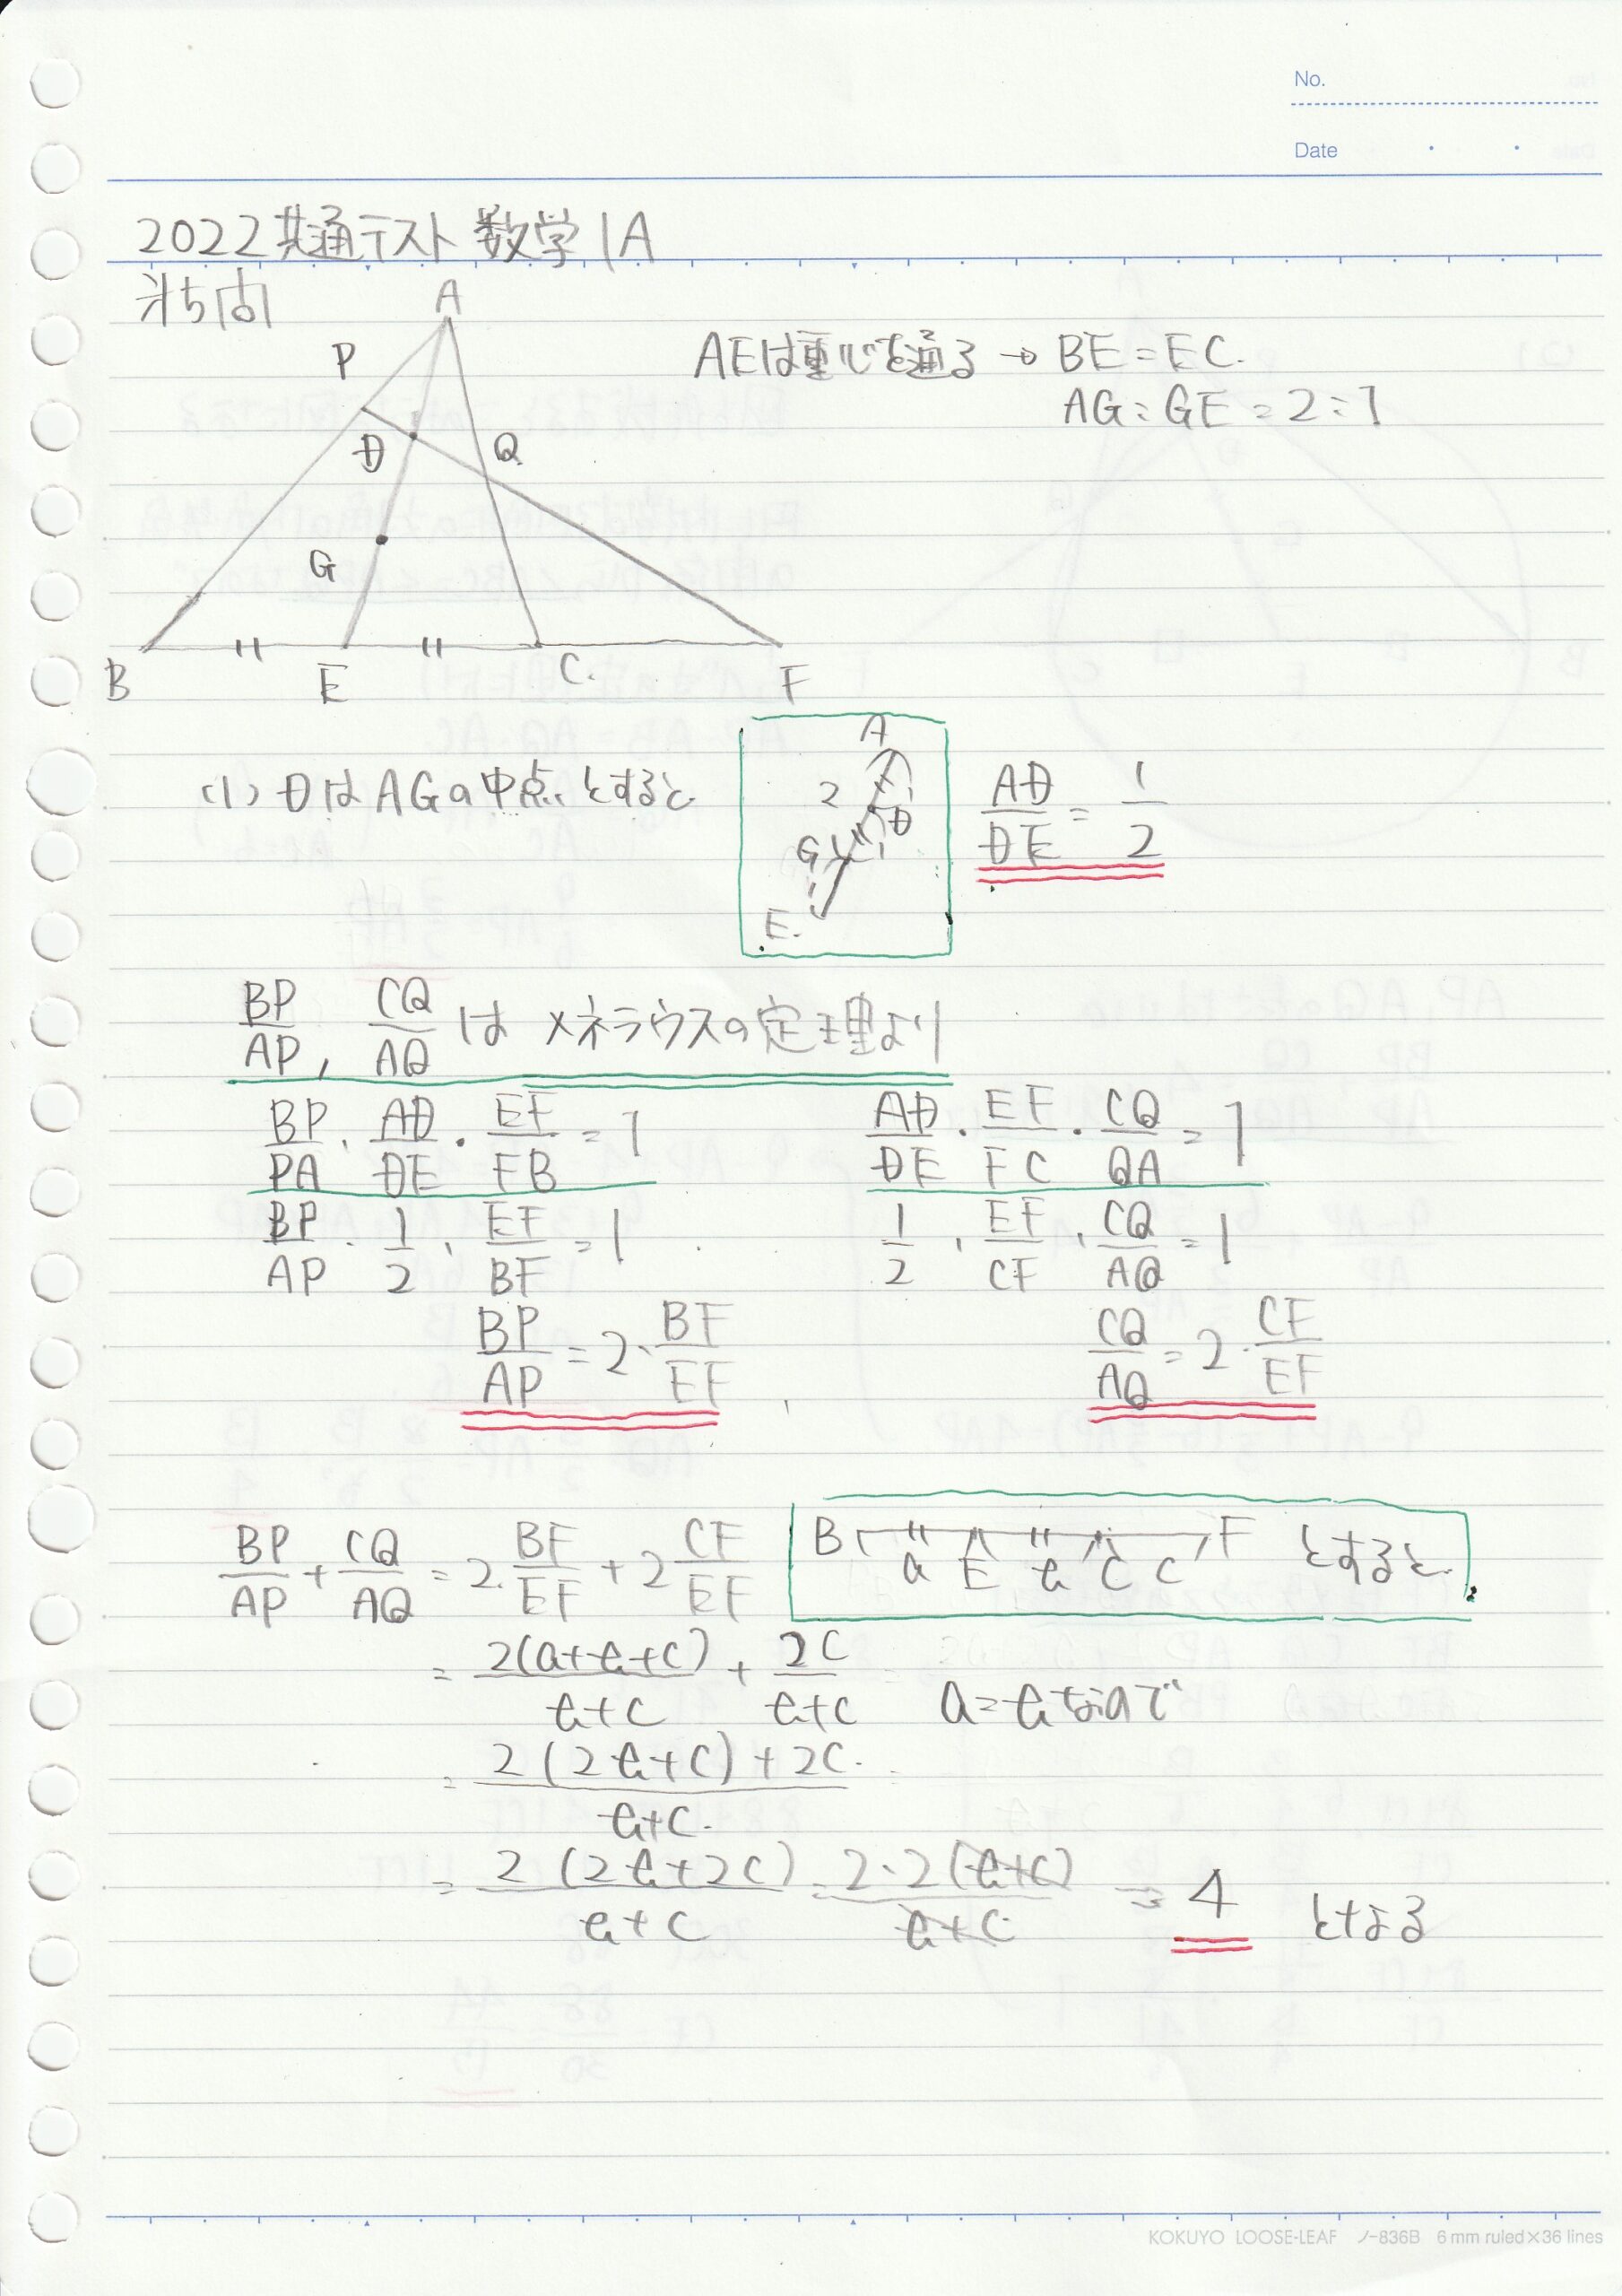 No.
Date
2022共通テスト 数学1A
第5問
A
P
D
Q
G
B
E
C.
F
AEは重心を通る → BE = EC.
AG : GE = 2 : 1
(1) DはAGの中点とすると
A
2
D
1
G
1
E.
AD/DE = 1/2
BP/AP, CQ/AQ は メネラウスの定理より
BP/PA · AD/DE · EF/FB = 1
AD/DE · EF/FC · CQ/QA = 1
BP/AP · 1/2 · EF/BF = 1
1/2 · EF/CF · CQ/AQ = 1
BP/AP = 2 · BF/EF
CQ/AQ = 2 · CF/EF
BP/AP + CQ/AQ = 2 · BF/EF + 2 CF/EF
B a E b C c F とすると
= 2(a+b+c)/b+c + 2c/b+c a=bなので
= 2(2b+c)+2c/b+c
= 2(2b+2c)/b+c = 2·2(b+c)/b+c = 4 となる
KOKUYO LOOSE-LEAF ノ-836B 6 mm ruled×36 lines